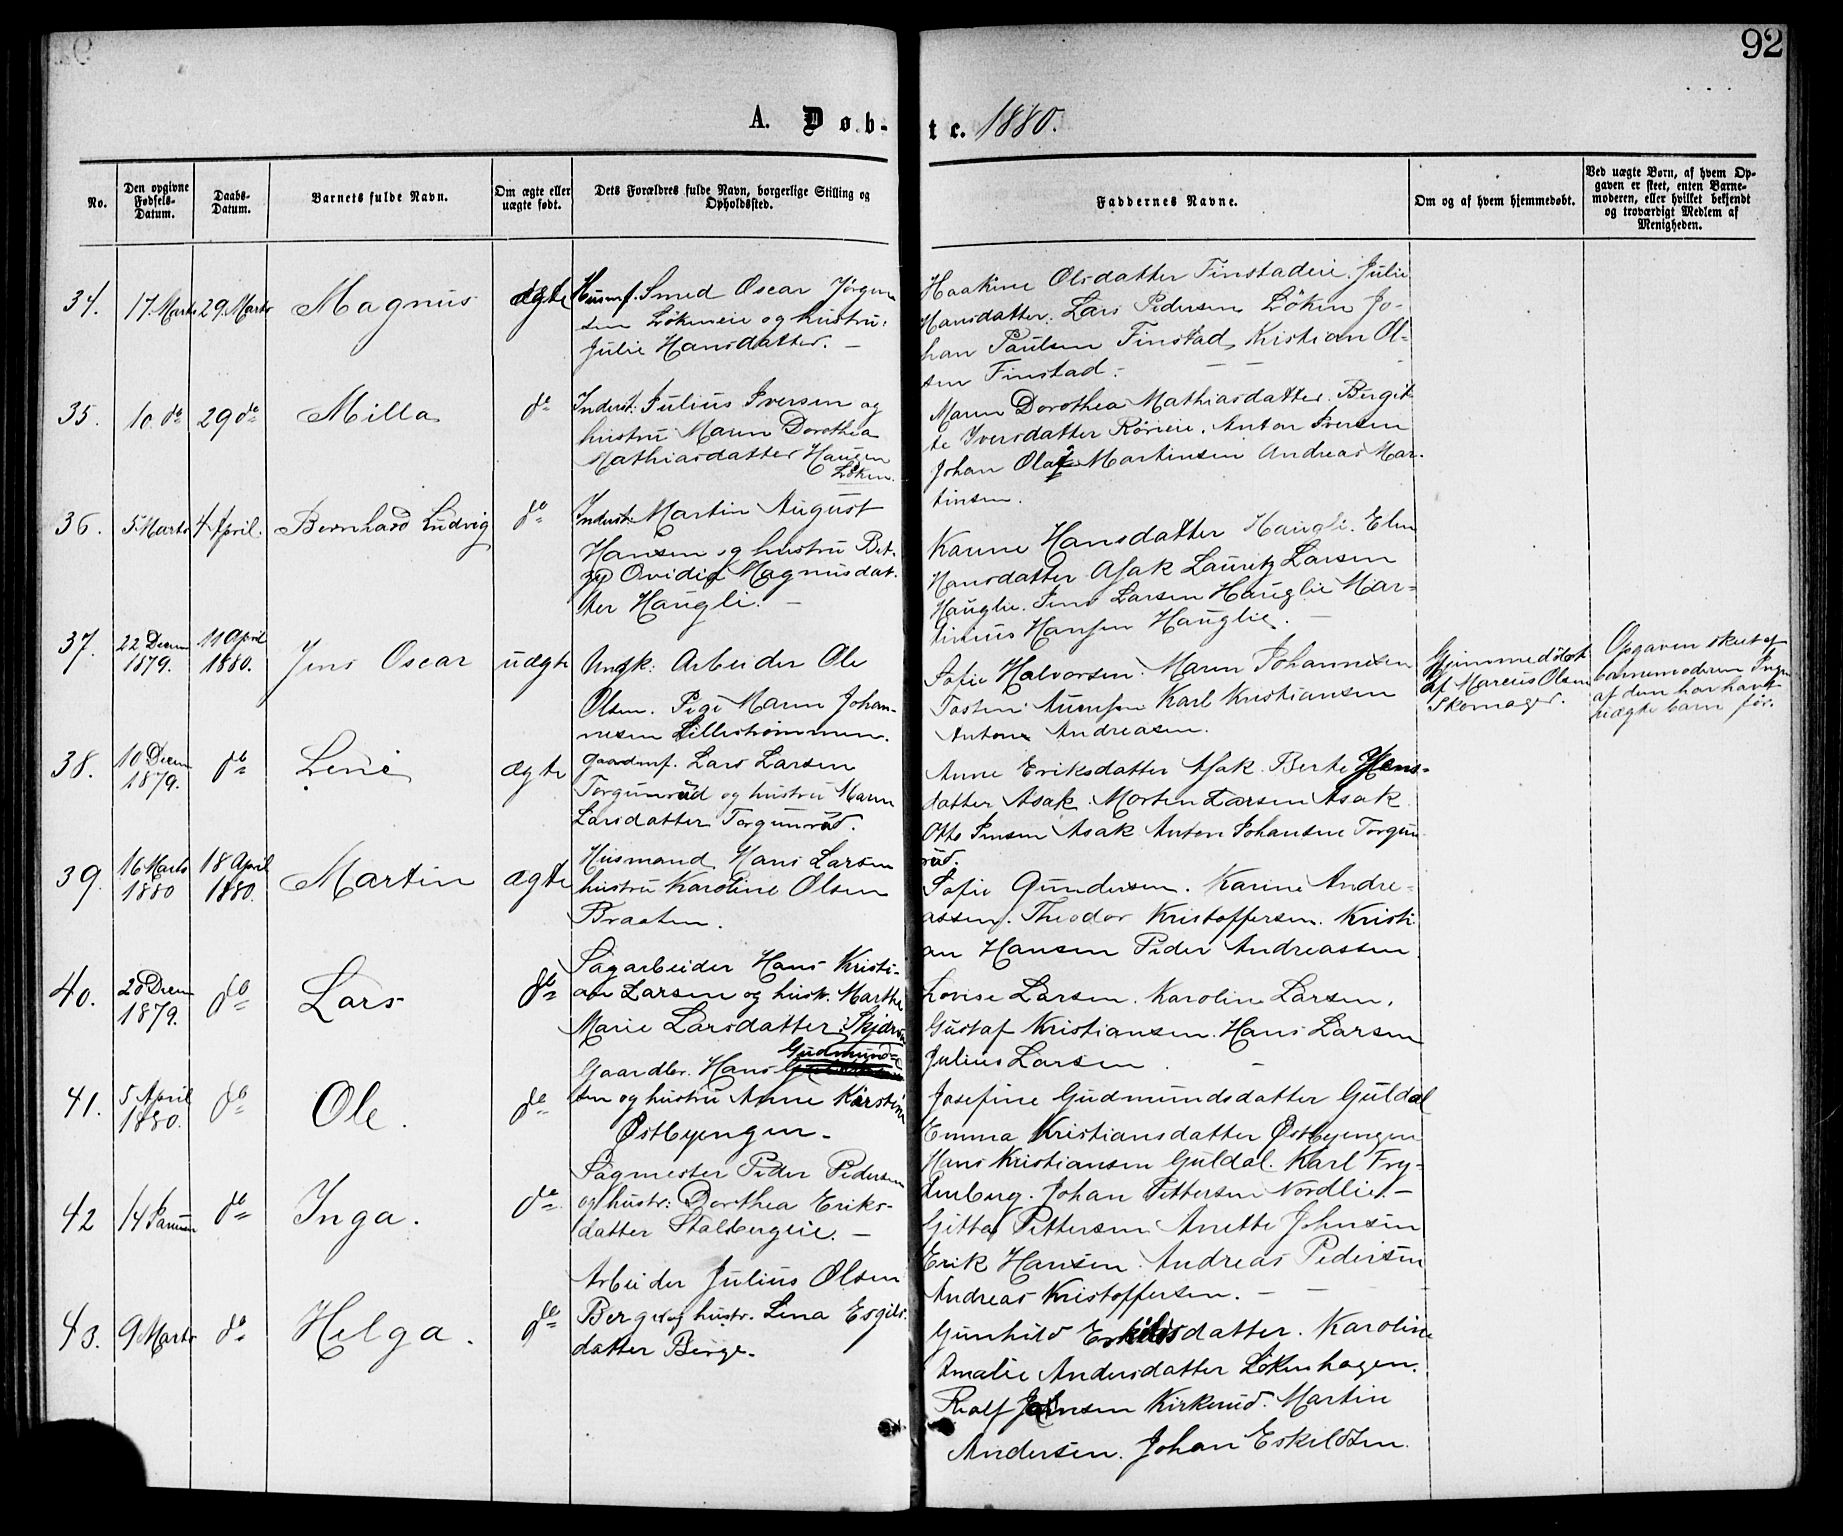 92
A. Døb- te. 1880.
No.
Den opgivne Fødsels-Datum.
Daabs-Datum.
Barnets fulde Navn.
Om ægte eller uægte født.
Dets Forældres fulde Navn, borgerlige Stilling og Opholdssted.
Faddernes Navne.
Om og af hvem hjemmedøbt.
Ved uægte Børn, af hvem Op-
gaven er skeet, enten Barne-
moderen, eller hvilket bekjendt
og troværdigt Medlem af
Menigheden.
34. 17. Marts 29. Marts Magnus ægte
Husmf. Smed Oscar Jörgen
sen Lökeneie og hustru:
Julie Hansdatter. —
Haakine Olsdatter Finstadeie. Julie
Hansdatter. Lars Pedersen Löken Jo-
han Paulsen Finstad, Kistian Ol-
sen Finstad.
35. 10. do 29 do Milla do
Inderst: Julius Iversen og
hustru Maren Dorothea
Mathiasdatter Haugen
Löken.
Maren Dorothea Mathiasdatter. Bergit
te Iversdatter Röreie. Anton Iversen
Johan Olaf Martinsen Andreas Mar-
tinsen.
36. 5 Marts 4 April. Bernhard Ludvig do
Inderst: Martin August
Hansen og hustru Bet-
zy Ovidia Magnusdat-
ter Haugli. —
Karine Hansdatter Haugli. Elen
Hansdatter Asak Lauritz Larsen
Hauglie. Jens Larsen Hauglie Mar-
tinius Hansen Hauglie. —
37. 22 Decem 1879. 11 April 1880. Jens Oscar uægte
Ungk: Arbeider Ole
Olsen. Pige Maren Johan-
nesen Lillestrømmen.
Sofie Halvorsen. Maren Johannesen
Tosten Aumsen Karl Kristiansen
Anton Andreasen.
Hjemmedöbt
af Marcus Olsen
Skomager.
Opgaven skeet af
barnemoderen Ingen
af dem har havt
uægte barn før.
38. 10 Decem 1879. do Lene ægte
Gaardmf. Lars Larsen
Torgunrud og hustru Maren
Larsdatter Torgunrud.
Anne Eriksdatter Asak Berte Hans-
datter Asak. Morten Larsen Asak
Otto Jensen Asak Anton Johansen Torgun
rud.
39. 16 Marts 1880 18 April 1880. Martin ægte
Husmand Hans Larsen
hustru Karoline Olsen
Braaten.
Sofie Gundersen. Karine Andre-
assen. Theodor Kristoffersen. Kristi
an Hansen Peder Andreassen
40. 20 Decem 1879. do Lars do
Sagarbeider Hans Kristi-
an Larsen og hust. Marthe
Marie Larsdatter Skjærva
Lovise Larsen. Karoline Larsen.
Gustaf Kristiansen. Hans Larsen
Julius Larsen. —
41. 5 April 1880. do Ole. do
Gudmund-
Gaardbr. Hans
sen og hustru Anne Kirstine
Østbyengen.
Josefine Gudmundsdatter Guldal
Emma Kristiansdatter Østbyengen
Hans Kristiansen Guldal. Karl Fry-
denberg. Johan Pettersen Nordlie. —
42 14 Januar do Inga. do
Sagmester Peder Pedersen
og hustr: Dorthea Eriks-
datter Stalbergeie. —
Gitta Pettersen Anette Johnsen
Erik Hansen. Andreas Pedersen
Andreas Kristoffersen. —
43. 9 Marts do Helga. do
Arbeider Julius Olsen
Berge og hustr. Lina Esgils
datter Berge.
Gunhild Eskildsdatter. Karoline
Amalie Andersdatter Lökenhagen.
Rolf Johnsen Kirkerud. Martin
Andersen. Johan Eskildsen.